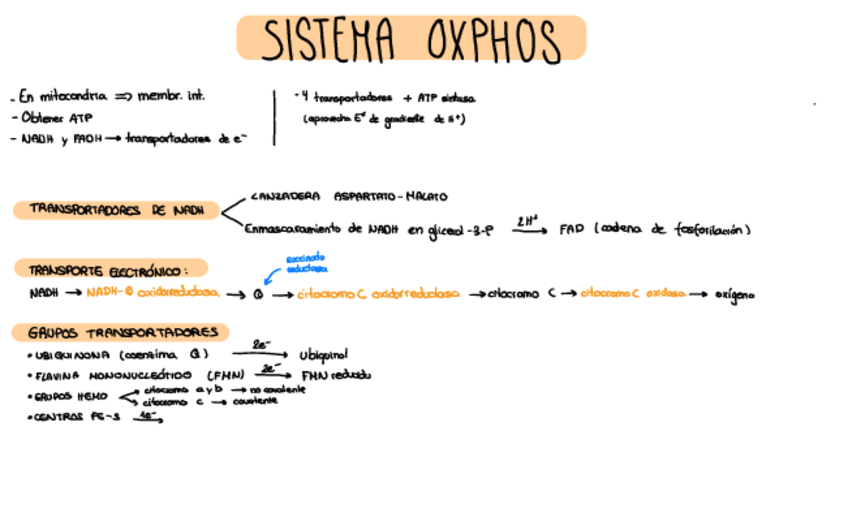 SISTEMA OXPHOS
- En mitocondria ⇒ membr. int.
- Obtener ATP
- NADH y FADH → transportadores de e⁻
- 4 transportadores + ATP sintasa
(aprovecha Eª de gradiente de H⁺)
TRANSPORTADORES DE NADH
LANZADERA ASPARTATO-MALATO
Enmascaramiento de NADH en glicerol-3-P 2H⁺ → FAD (cadena de fosforilación)
TRANSPORTE ELECTRÓNICO:
succinato
reductasa
NADH → NADH-Q oxidorreductasa → Q → citocromo C oxidorreductasa → citocromo C → citocromo C oxidasa → oxígeno
GRUPOS TRANSPORTADORES
• UBIQUINONA (coenzima Q) 2e⁻ → Ubiquinol
• FLAVINA MONONUCLEÓTIDO (FMN) 2e⁻ → FMN reducido
• GRUPOS HEMO
citocromo a y b → no covalente
citocromo c → covalente
• CENTROS FE-S 1e⁻ →